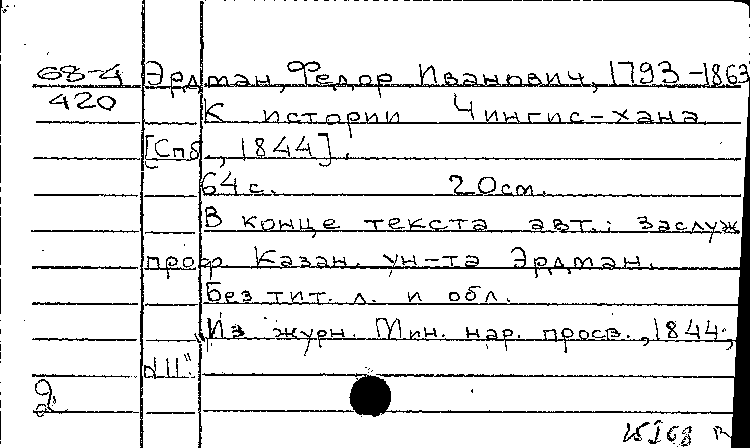 68-4 Эрдман, Федор Иванович, 1793-1863
420
К истории Чингис-хана
[Спб., 1844].
64 с. 20 см.
В конце текста авт.: Заслуж
проф. Казан. ун-та Эрдман.
Без тит. л. и обл.
"Из журн. Мин. нар. просв., 1844,
№11"